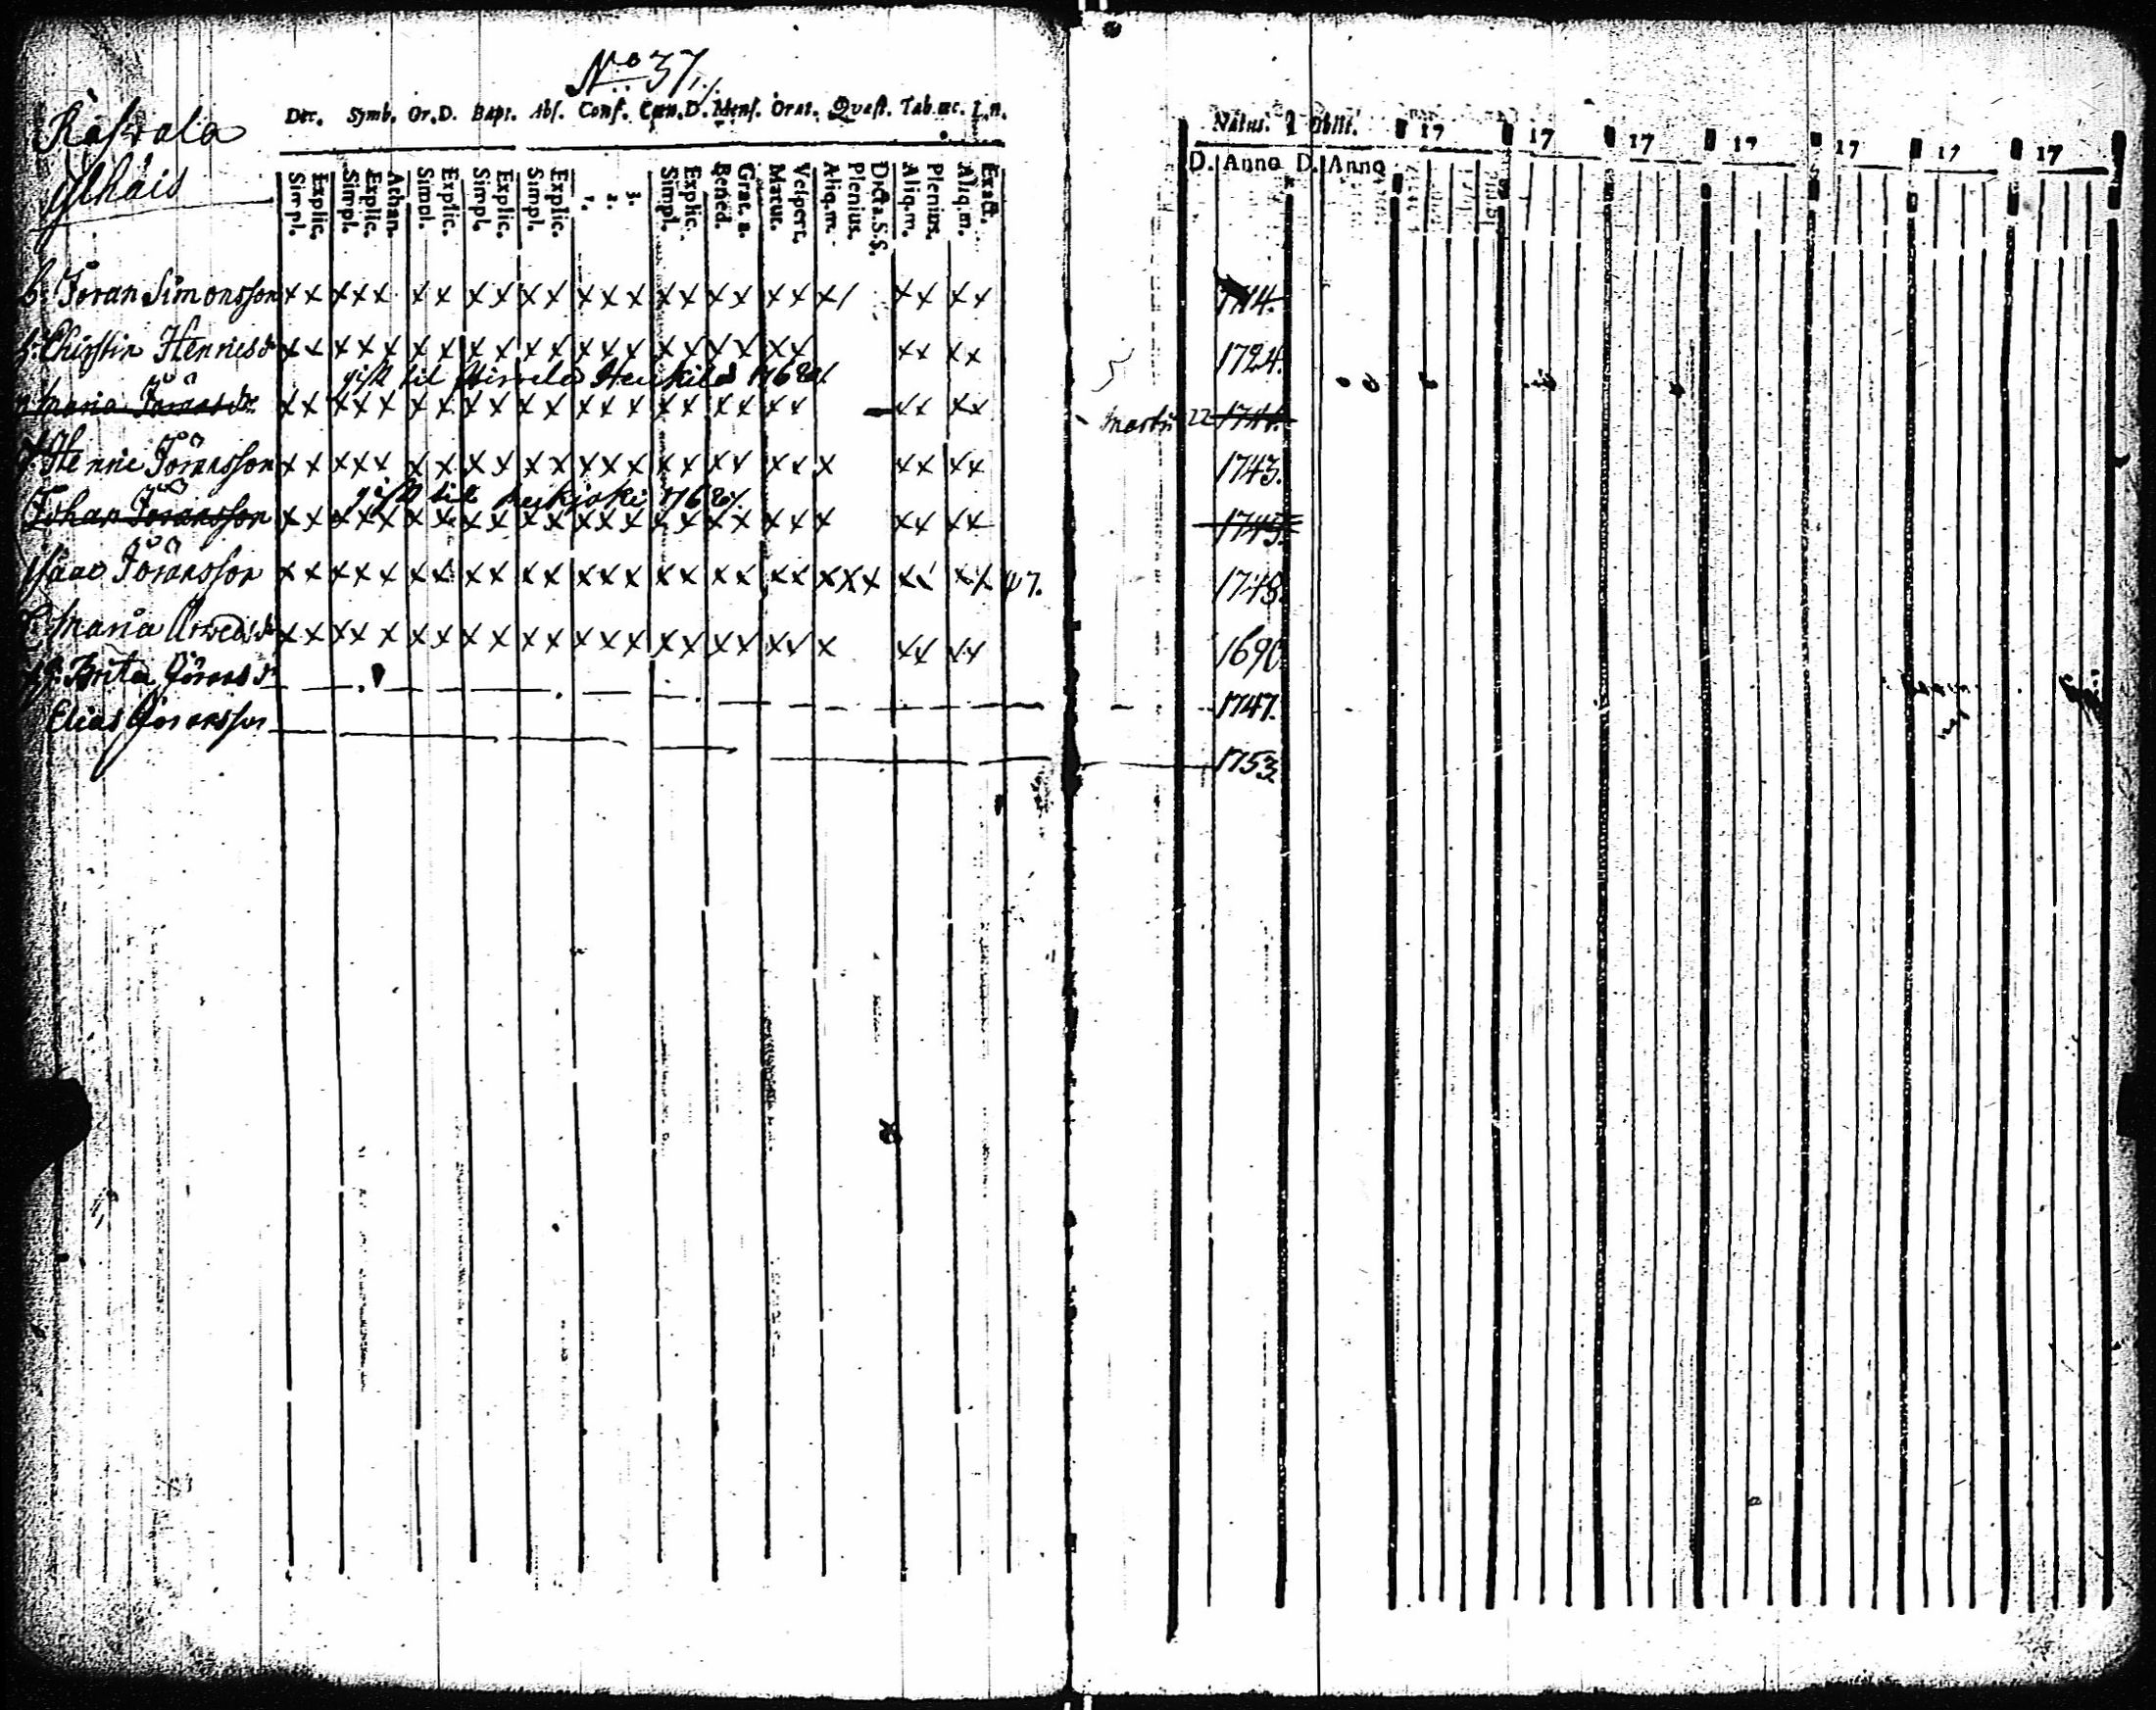 No 37.
Raswala
Dec. Symb. Or.D. Bapt. Abs. Conf. Cœn.D. Mens. Orat. Quæst. Tab.œc. L.n.
Simpl. Explic. Simpl. Explic. Athan. Simpl. Explic. Simpl. Explic. Simpl. Explic. 1. 2. 3. Simpl. Explic. Bened. Grat. a. Matut. Vespert. Aliq.m. Plenius. Dicta.S.S. Aliq.m. Plenius. Aliq.m. Exact.
Natus. Obiit. 17 17 17 17 17 17 17
D. Anno D. Anno
Jöran Simonsson x x x x x x x x x x x x x x x x x x x x x / x x x x 1714.
Christin Henricsdr x x x x x x x x x x x x x x x x x x x x x x x 1724.
gift til Heikilä 1762
Maria Jöransdr x x x x x x x x x x x x x x x x x x x x x x x x Martii 22 1741.
Henric Jöransson x x x x x x x x x x x x x x x x x x x x x x x x x 1743.
gift til 1762
Johan Jöransson x x x x x x x x x x x x x x x x x x x x x x x x x 1745.
Isaac Jöransson x x x x x x x x x x x x x x x x x x x x x x x x x x x 47. 1748.
Maria Arvedsdr x x x x x x x x x x x x x x x x x x x x x x x x x 1690
Brita Göransdr 1747.
Elias Göransson 1753.